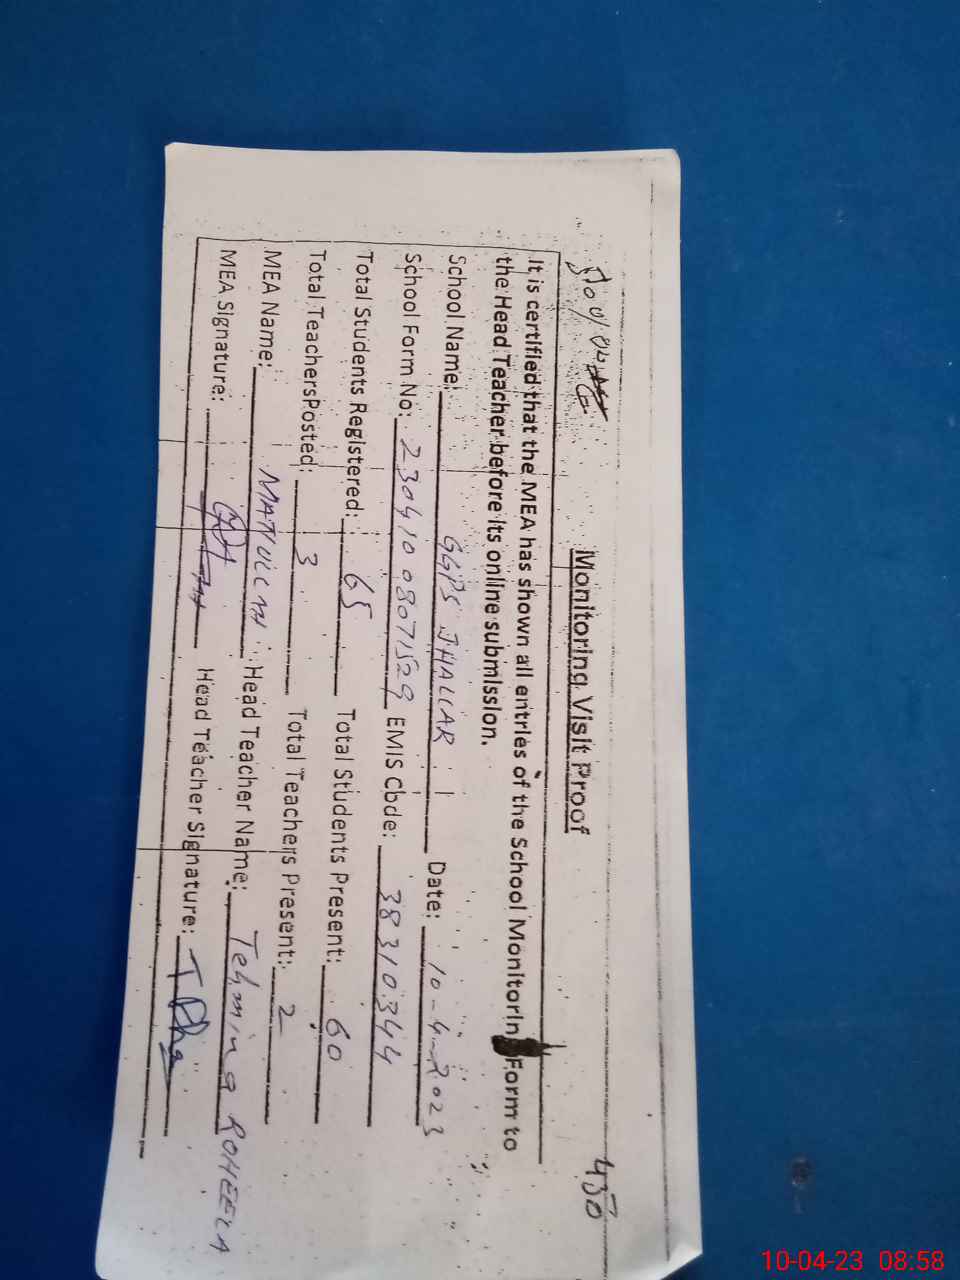 430
Monitoring Visit Proof
It is certified that the MEA has shown all entries of the School Monitorin Form to
the Head Teacher before its online submission.
School Name: GGPS JHALLAR Date: 10-4-2023
School Form No: 23041008071529 EMIS Cbde: 38310344
Total Students Registered: 65 Total Students Present: 60
Total TeachersPosted: 3 Total Teachers Present: 2
MEA Name: Head Teacher Name: Tehmina ROHEELA
MEA Signature: Head Teacher Signature:
10-04-23 08:58